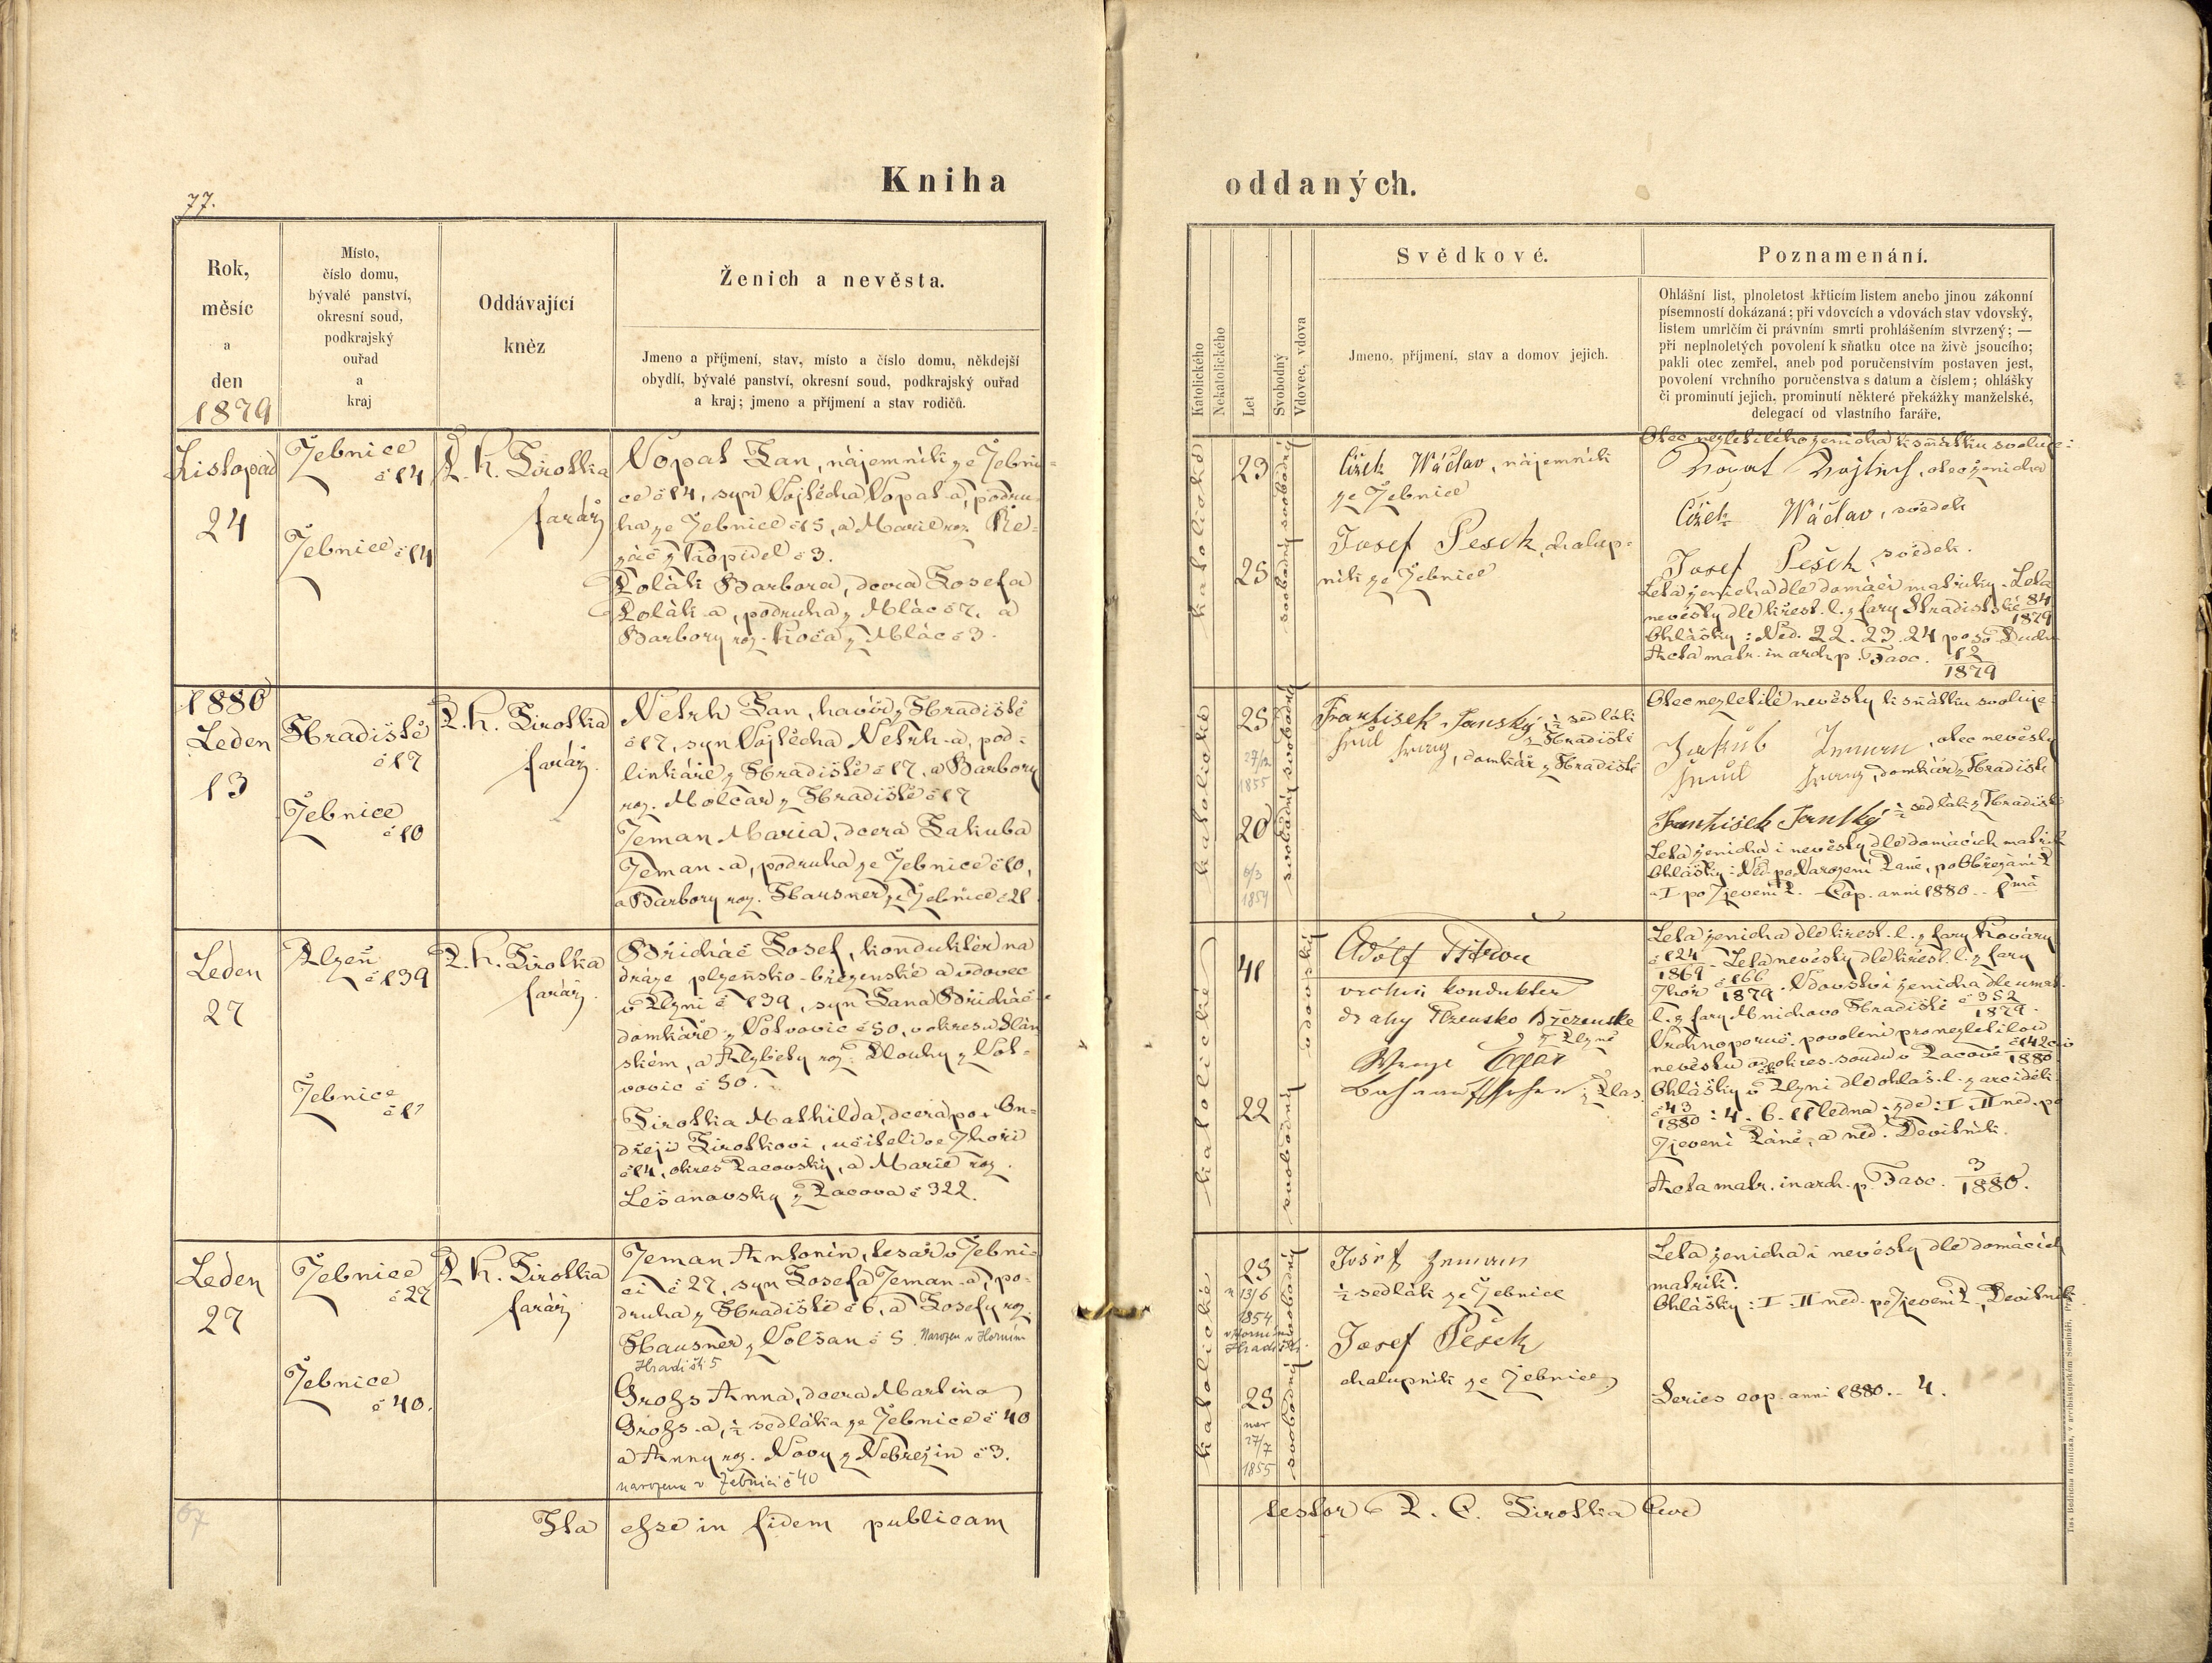 77.
Kniha
oddaných.
Rok,
měsíc
a
den
1879
Místo,
číslo domu,
bývalé panství,
okresní soud,
podkrajský
ouřad
a
kraj
Oddávající
kněz
Ženich a nevěsta.
Jmeno a příjmení, stav, místo a číslo domu, někdejší
obydlí, bývalé panství, okresní soud, podkrajský ouřad
a kraj; jmeno a příjmení a stav rodičů.
Katolického
Nekatolického
Let
Svobodný
Vdovec, vdova
Svědkové.
Jmeno, příjmení, stav a domov jejich.
Poznamenání.
Ohlášní list, plnoletost křticím listem anebo jinou zákonní
písemností dokázaná; při vdovcích a vdovách stav vdovský,
listem umrlčím či právním smrti prohlášením stvrzený; —
při neplnoletých povolení k sňatku otce na živě jsoucího;
pakli otec zemřel, aneb pod poručenstvím postaven jest,
povolení vrchního poručenstva s datum a číslem; ohlášky
či prominutí jejich, prominutí některé překážky manželské,
delegací od vlastního faráře.
Listopad
24
Žebnice
č 14
Žebnice č 14
P. K. Sirotka
farář
Vopat Jan, nájemník ze Žebni-
ce č 14, syn Vojtěcha Vopat-a, podru-
ha ze Žebnice č 15, a Marie roz. Ře-
záč z Kopidel č 3.
Polák Barbora, dcera Josefa
Polák-a, podruha z Mlác č 7. a
Barbory roz. Koča z Mlác č 3.
katolické
23
25
svobodný svobodný
Čížek Wáclav, nájemník
ze Žebnice
Josef Pesek, chalup-
ník ze Žebnice
Otec nezletilého ženicha k sňatku svoluje:
Vopat Vojtěch, otec ženicha
Čížek Wáclav, svědek
Josef Pešek, svědek.
Leta ženicha dle domácí matriky. Leta
nevěsty dle křest. l. z fary Hradištské 84
1879
Ohlášky: Ned. 22. 23. 24 po sv. Duchu
Acta matr. in arch. p. Fasc. 12
1879
1880
Leden
13
Hradiště
č 17
Žebnice
č 10
P. K. Sirotka
farář.
Netrh Jan, havíř z Hradiště
č 17, syn Vojtěcha Netrh-a, pod-
linkáře z Hradiště č 17, a Barbory
roz. Molčar z Hradiště č 17
Zeman Maria, dcera Jakuba
Zeman-a, podruha ze Žebnice č 10,
a Barbory roz. Hausner ze Žebnice č 21.
katolické
25
27/12
1855
20
6/3
1859
svobodný svobodná
František Janský, ½ sedlák
z Hradiště
domkář z Hradiště
Otec nezletilé nevěsty k sňatku svoluje
Jakub Zeman, otec nevěsty
domkář z Hradiště
František Janský ½ sedlák z Hradiště
Leta ženicha i nevěsty dle domácích matrik
Ohlášky: Ned. po Narození Páně, po Obřezání P.
a I po Zjevení P. – Cop. anni 1880 – 1má
Leden
27
Plzeň
č 139
Žebnice
č 1
P. K. Sirotka
farář.
Břicháč Josef, konduktér na
dráze plzeňsko-březenské a vdovec
v Plzni č 139, syn Jana Břicháč-a
domkáře z Votvovic č 50, v okresu Slán
ském, a Alzběty roz. Dlouhy z Vot-
vovic č 50.
Sirotka Mathilda, dcera po † On-
dřeji Sirotkovi, učiteli ve Zhoři
č 14, okres Pacovský, a Marie roz.
Lešanavsky z Pacova č 322.
katolické
41
22
vdovský
svobodný
Adolf
vrchní kondukter
drahy Plzensko Březenske
z Plzně
Leta ženicha dle křest. l. z fary Kováry
č 124
1869. Leta nevěsty dle křest. l. z fary
Zhoř č 166
1879. Vdovství ženicha dle umrl.
l. z fary Mnichovo Hradiště č 352
1879.
Vrchnoporuč. povolení pro nezletilou
nevěstu od okres. soudu v Pacově č 142 civ
1880
Ohlášky v Plzni dle ohláš. l. z arciděk.
č 43
1880: 4. 6. 11 ledna; zde: I. II ned. po
Zjevení Páně, a ned. Devítník.
Acta matr. in arch. p. Fasc. 3
1880.
Leden
27
Žebnice
č 27
Žebnice
č 40.
P. K. Sirotka
farář
Zeman Antonín, tesař v Žebni-
ci č 27, syn Josefa Zeman-a, po-
druha z Hradiště č 6, a Josefy roz.
Hausner z Volšan č 5. Narozen v Horním
Hradišti 5
Grohs Anna, dcera Martina
Grohs-a, ½ sedláka ze Žebnice č 40
a Anny roz. Novy z Nebřezin č 3.
narozena v Žebnici č 40
katolické
25
n 13/6
1854
v Horním
Hradišti.
25
nar
27/7
1855
svobodný svobodný
Josef Zeman
½ sedlák ze Žebnice
Josef Pešek
chalupník ze Žebnice
Leta ženicha i nevěsty dle domácích
matrik.
Ohlášky: I. II ned. po Zjevení P., Devítník.
Series cop. anni 1880. – 4.
67
Ita esse in fidem publicam
testor P. C. Sirotka Cur